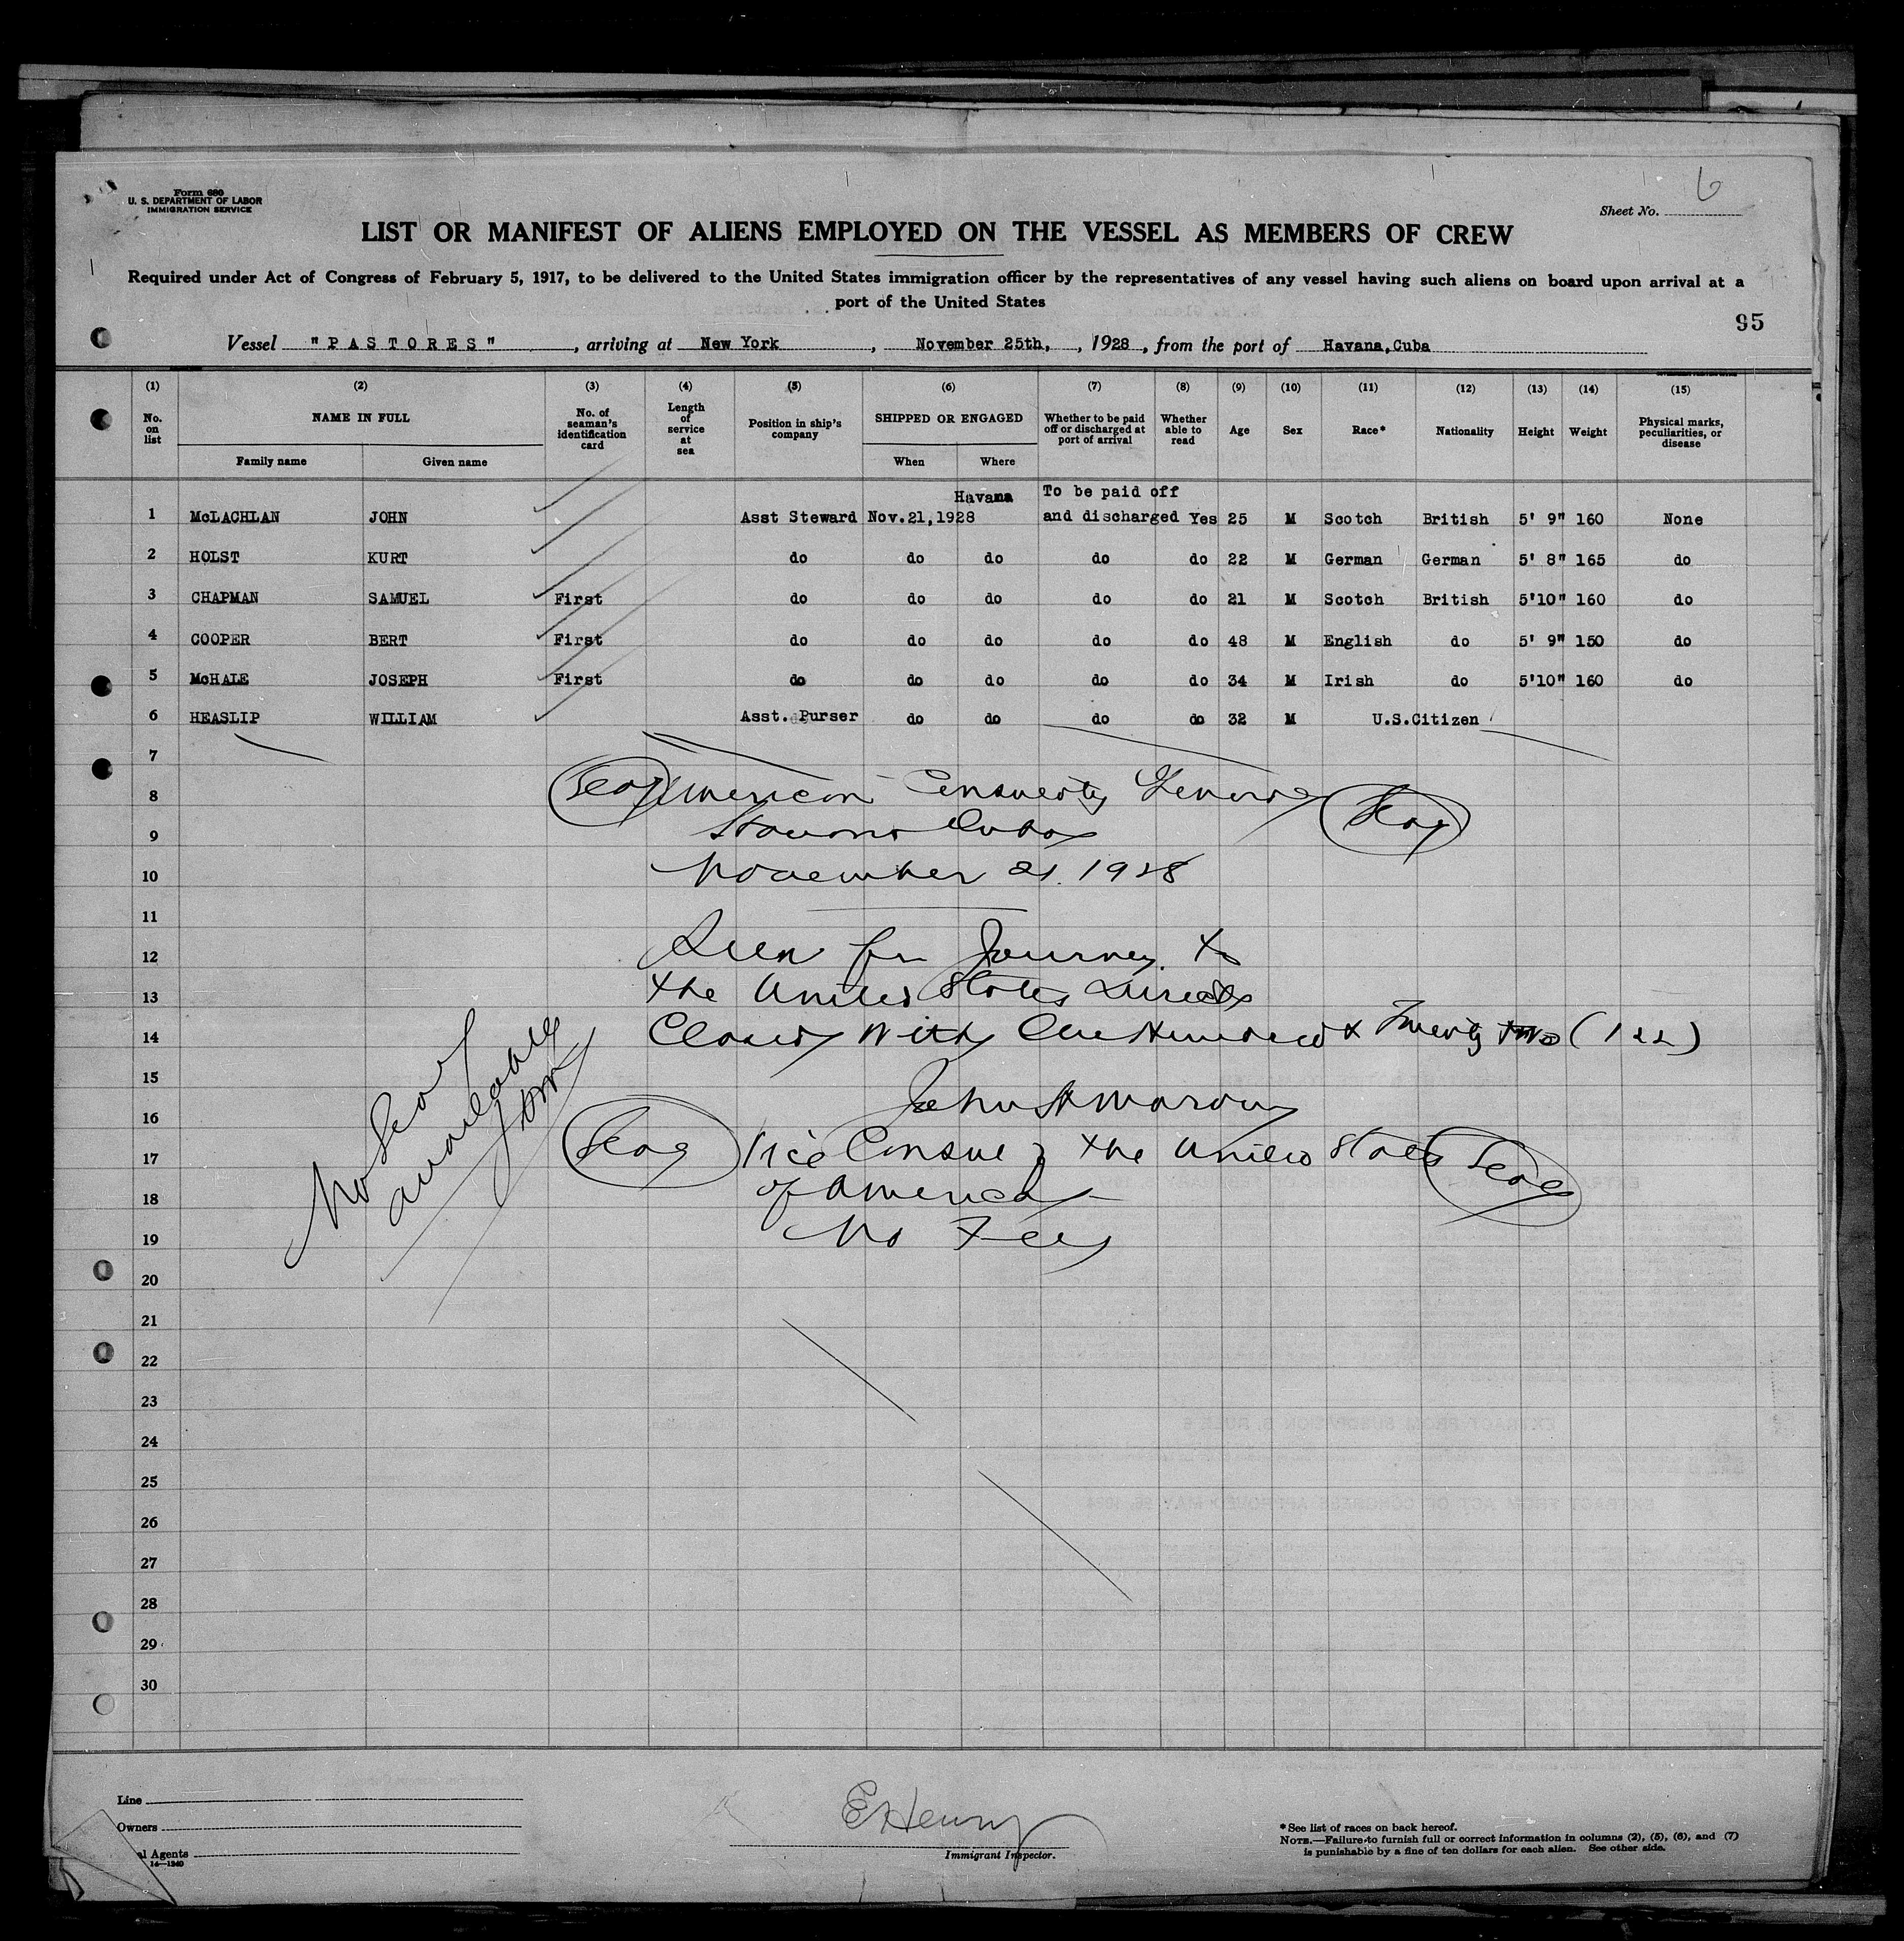 Form 680
U. S. DEPARTMENT OF LABOR
IMMIGRATION SERVICE
6
Sheet No.
LIST OR MANIFEST OF ALIENS EMPLOYED ON THE VESSEL AS MEMBERS OF CREW
Required under Act of Congress of February 5, 1917, to be delivered to the United States immigration officer by the representatives of any vessel having such aliens on board upon arrival at a
port of the United States
95
Vessel "PASTORES", arriving at New York, November 25th, , 1928, from the port of Havana, Cuba
(1) (2) (3) (4) (5) (6) (7) (8) (9) (10) (11) (12) (13) (14) (15)
No. on list NAME IN FULL No. of seaman's identification card Length of service at sea Position in ship's company SHIPPED OR ENGAGED Whether to be paid off or discharged at port of arrival Whether able to read Age Sex Race* Nationality Height Weight Physical marks, peculiarities, or disease
Family name Given name When Where
Havana To be paid off
1 McLACHLAN JOHN Asst Steward Nov.21,1928 and discharged Yes 25 M Scotch British 5' 9" 160 None
2 HOLST KURT do do do do do 22 M German German 5' 8" 165 do
3 CHAPMAN SAMUEL First do do do do do 21 M Scotch British 5'10" 160 do
4 COOPER BERT First do do do do do 48 M English do 5' 9" 150 do
5 McHALE JOSEPH First do do do do do 34 M Irish do 5'10" 160 do
6 HEASLIP WILLIAM Asst. Purser do do do do 32 M U.S.Citizen
7
8 Seal American Consulate General Seal
9 Havana Cuba
10 November 21. 1928
11
12 Seen for Journey to
13 the United States Direct
14 Closed With One Hundred & Twenty two (122)
15
16 John H
17 Seal Vice Consul of the United States Seal
18 of America
19 No Fee
No Seal
available
20
21
22
23
24
25
26
27
28
29
30
Line
Owners
al Agents
14—1240
EHenry
Immigrant Inspector.
*See list of races on back hereof.
NOTE.—Failure to furnish full or correct information in columns (2), (5), (6), and (7)
is punishable by a fine of ten dollars for each alien. See other side.